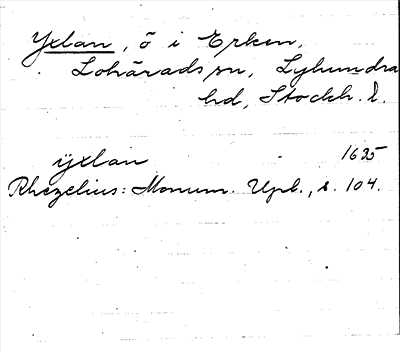 Yxlan, ö i Erken,
Lohärads sn, Lyhundra
hd, Stockh. l.
ÿxlan 1635
Rhezelius: Monum. Upl., s. 104.